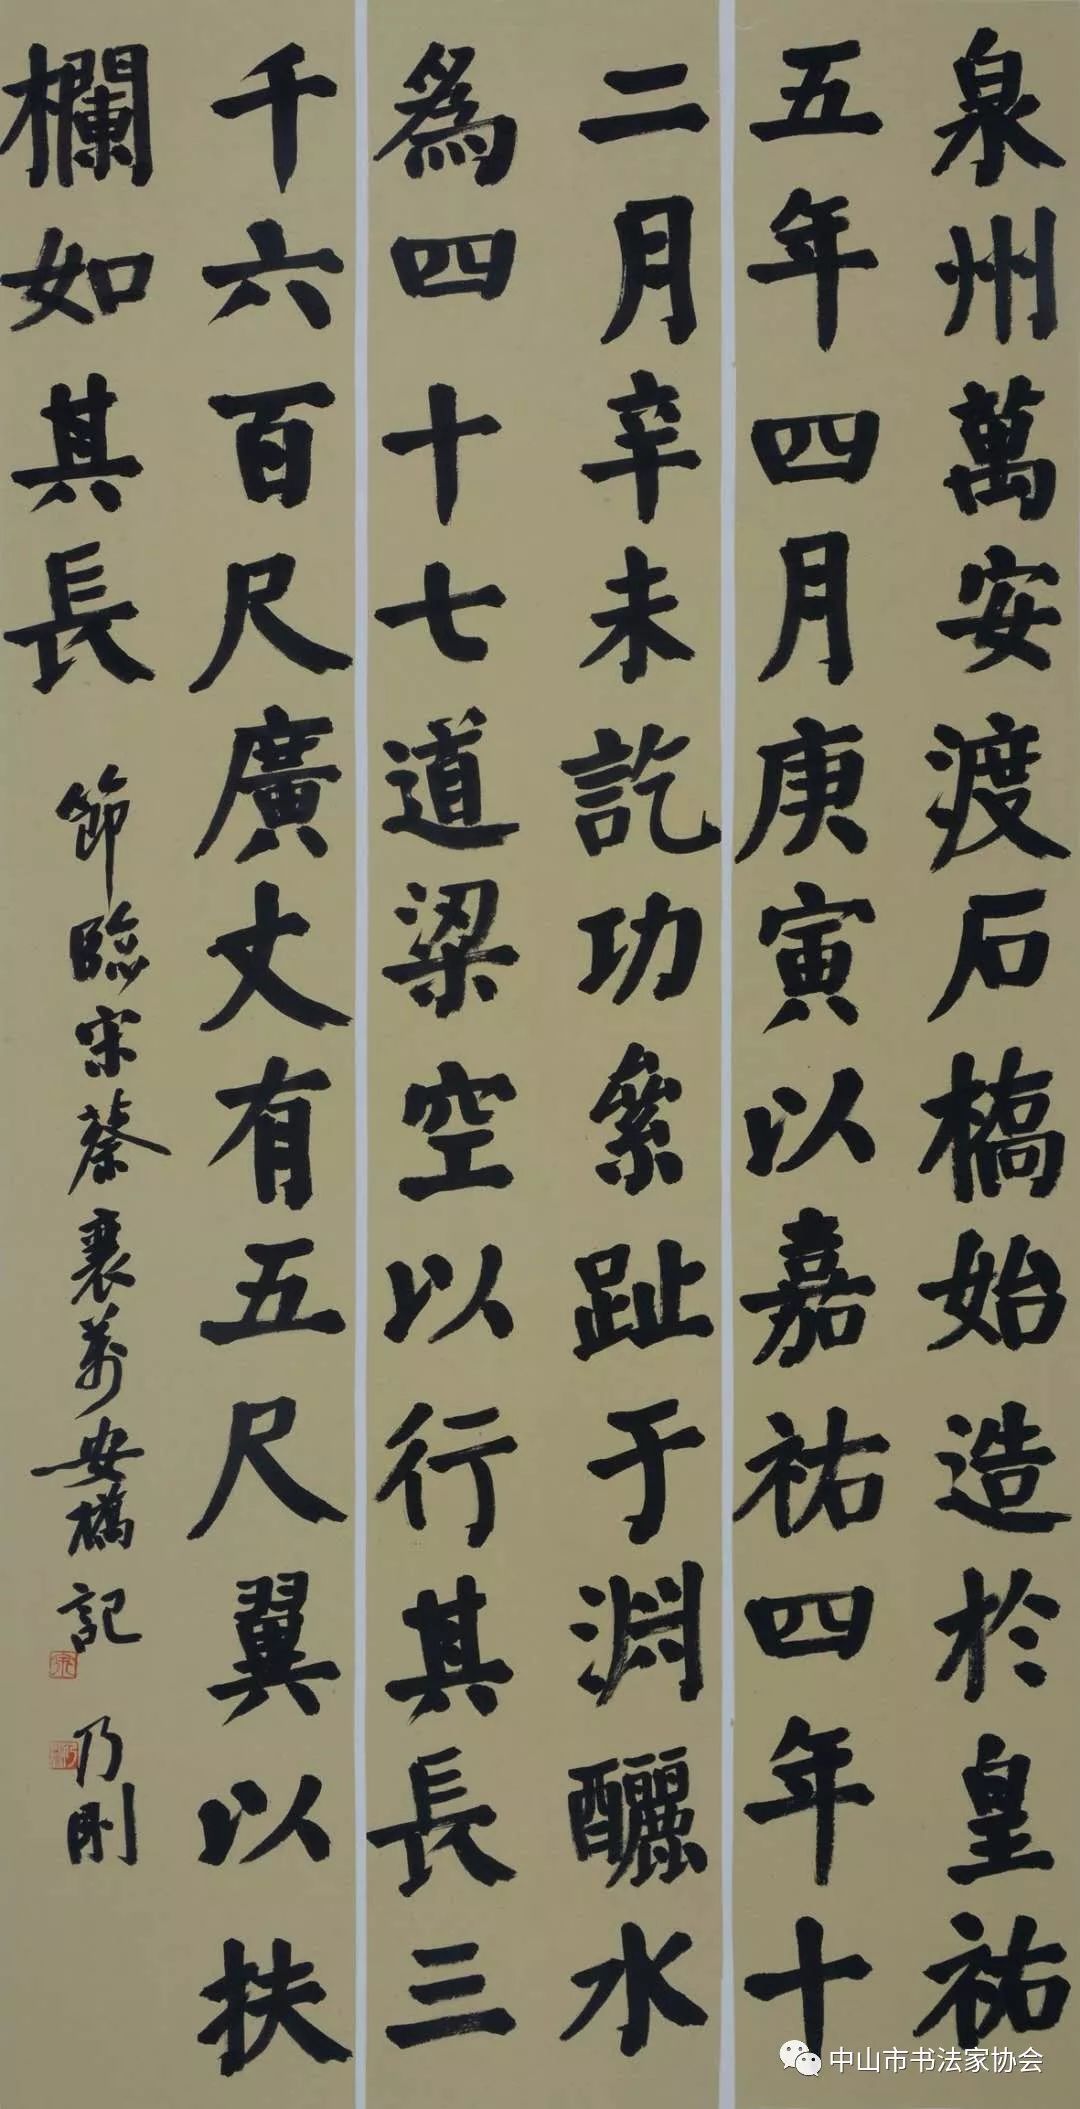 泉州萬安渡石橋始造於皇祐
五年四月庚寅以嘉祐四年十
二月辛未訖功絫趾于淵釃水
為四十七道梁空以行其長三
千六百尺廣丈有五尺翼以扶
欄如其長
節臨宋蔡襄萬安橋記 乃剛
中山市书法家协会